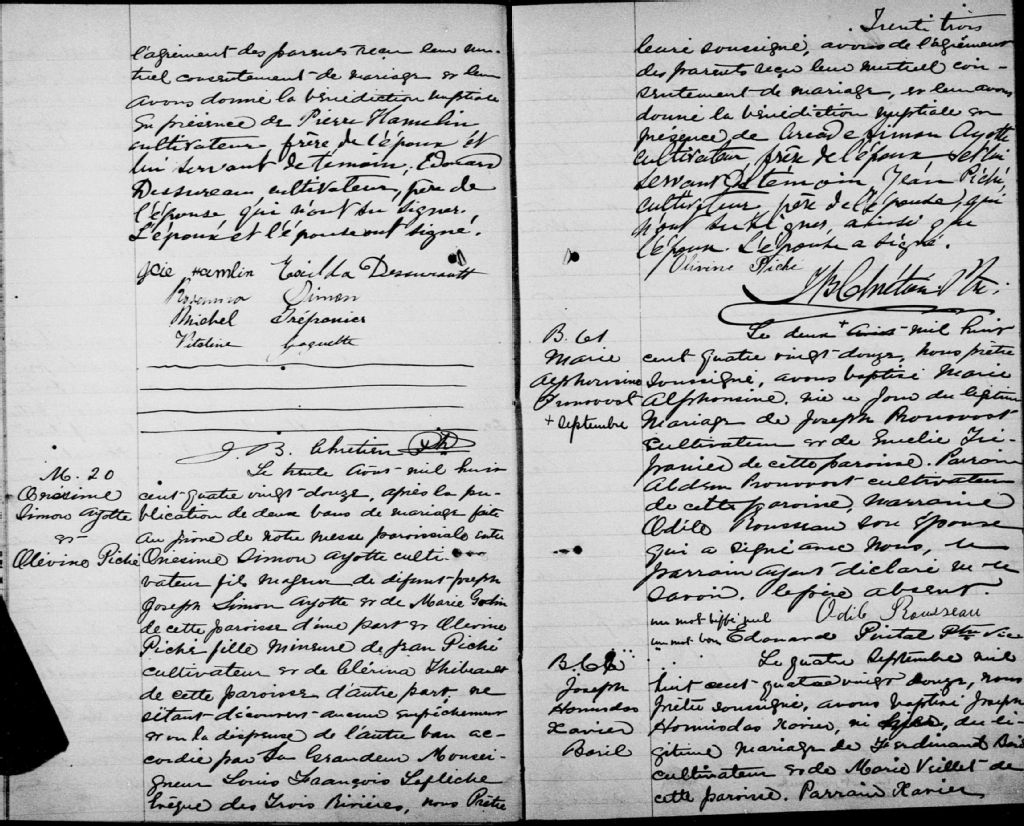 l'agrément des parents reçu leur mu-
tuel consentement de mariage et leur
avons donné la bénédiction nuptiale
En présence de Pierre Hamelin
cultivateur, frère de l'époux et
lui servant de témoin, Edouard
Dessureau cultivateur, père de
l'épouse, qui n'ont su signer.
L'époux et l'épouse ont signé.
Hamlin Exilda Dessureault
Rosanna Simon
Michel Trépanier
Vitaline
J. B. Chrétien Ptr
M. 20
Onésime
Simon Ayotte
&
Olévine Piché
Le trente Août mil huit
cent quatre vingt douze, après la pu-
blication de deux bans de mariage faite
au prone de notre messe paroissiale entre
Onésime Simon Ayotte culti-
vateur fils majeur de défunt Joseph
Joseph Simon Ayotte et de Marie Godin
de cette paroisse d'une part et Olévine
Piché fille mineure de Jean Piché
cultivateur et de Clérina Thibeault
de cette paroisse d'autre part ne
s'étant découvert aucun empêchement
et vu la dispense de l'autre ban ac-
cordée par Sa Grandeur Monsei-
gneur Louis François Laflèche
Evêque des Trois Rivières, nous Prêtre
Trente trois
curé soussigné, avons de l'agrément
des parents reçu leur mutuel con-
sentement de mariage, et leur avons
donné la bénédiction nuptiale en
présence de Simon Ayotte
cultivateur, frère de l'époux, et lui
servant de témoin, Jean Piché,
cultivateur père de l'épouse, qui
n'ont su signer, ainsi que
l'époux. L'épouse a signé.
Olivine Piché
J B Chrétien Ptre.
B. 61
Marie
Alphonsine
Pronovost
+ Septembre
Le deux + Août mil huit
cent quatre vingt douze, nous prêtre
soussigné, avons baptisé Marie
Alphonsine, née ce jour du légitime
mariage de Joseph Pronovost
cultivateur et de Emélie Tré-
panier de cette paroisse. Parrain
Pronovost cultivateur
de cette paroisse, marraine
Odile Rousseau son épouse
qui a signé avec nous, le
parrain ayant déclaré ne le
savoir. le père absent.
un mot biffé nul Odile Rousseau
un mot bon Edouard Pintal Ptre Vic
B. 62
Joseph
Hormisdas
Xavier
Baril
Le quatre Septembre mil
huit cent quatre vingt douze, nous
prêtre soussigné, avons baptisé Joseph
Hormisdas Xavier, né hier, du lé-
gitime mariage de Ferdinand Baril
cultivateur et de Marie Veillet de
cette paroisse. Parrain Xavier